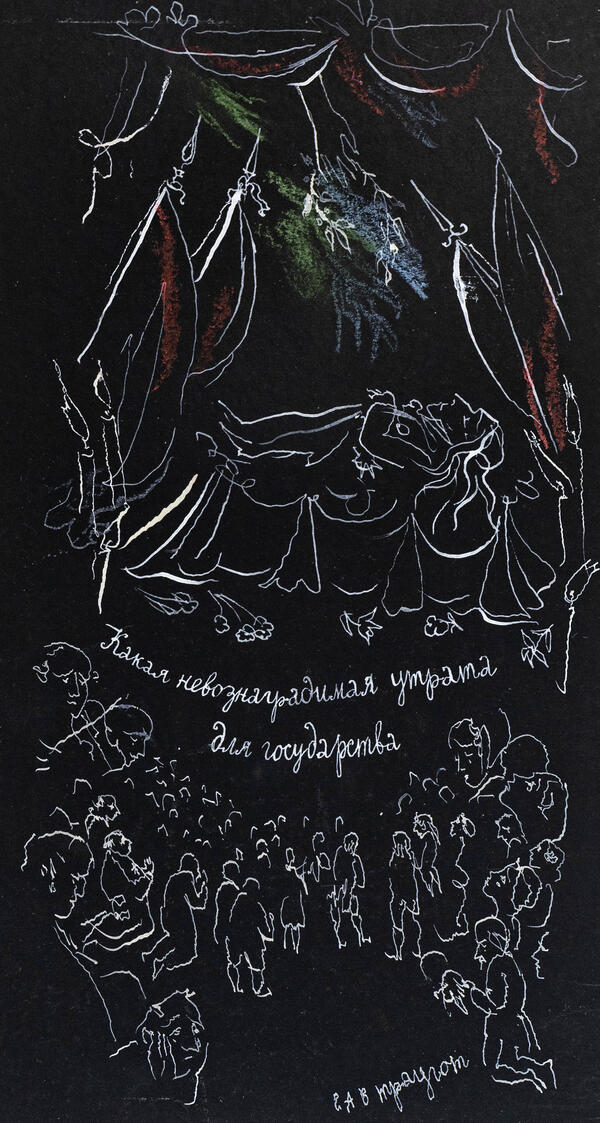 Какая невознаградимая утрата
для государства
Г А В Траугот